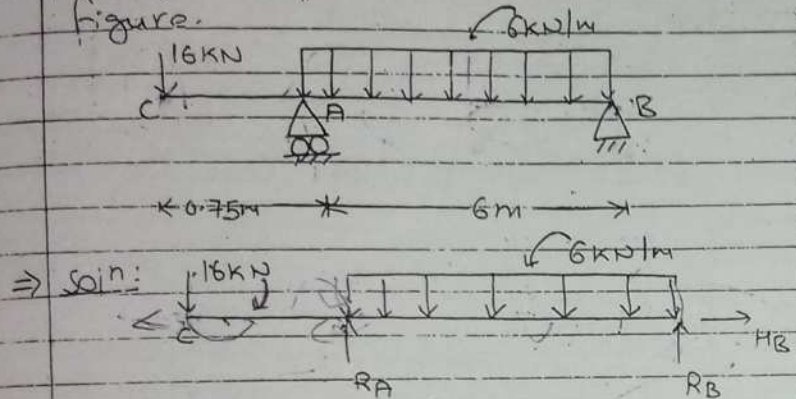 figure.
6KN/m
16KN
C A B
0.75m 6m
⇒ Soln:
16KN 6KN/m
C HB
RA RB